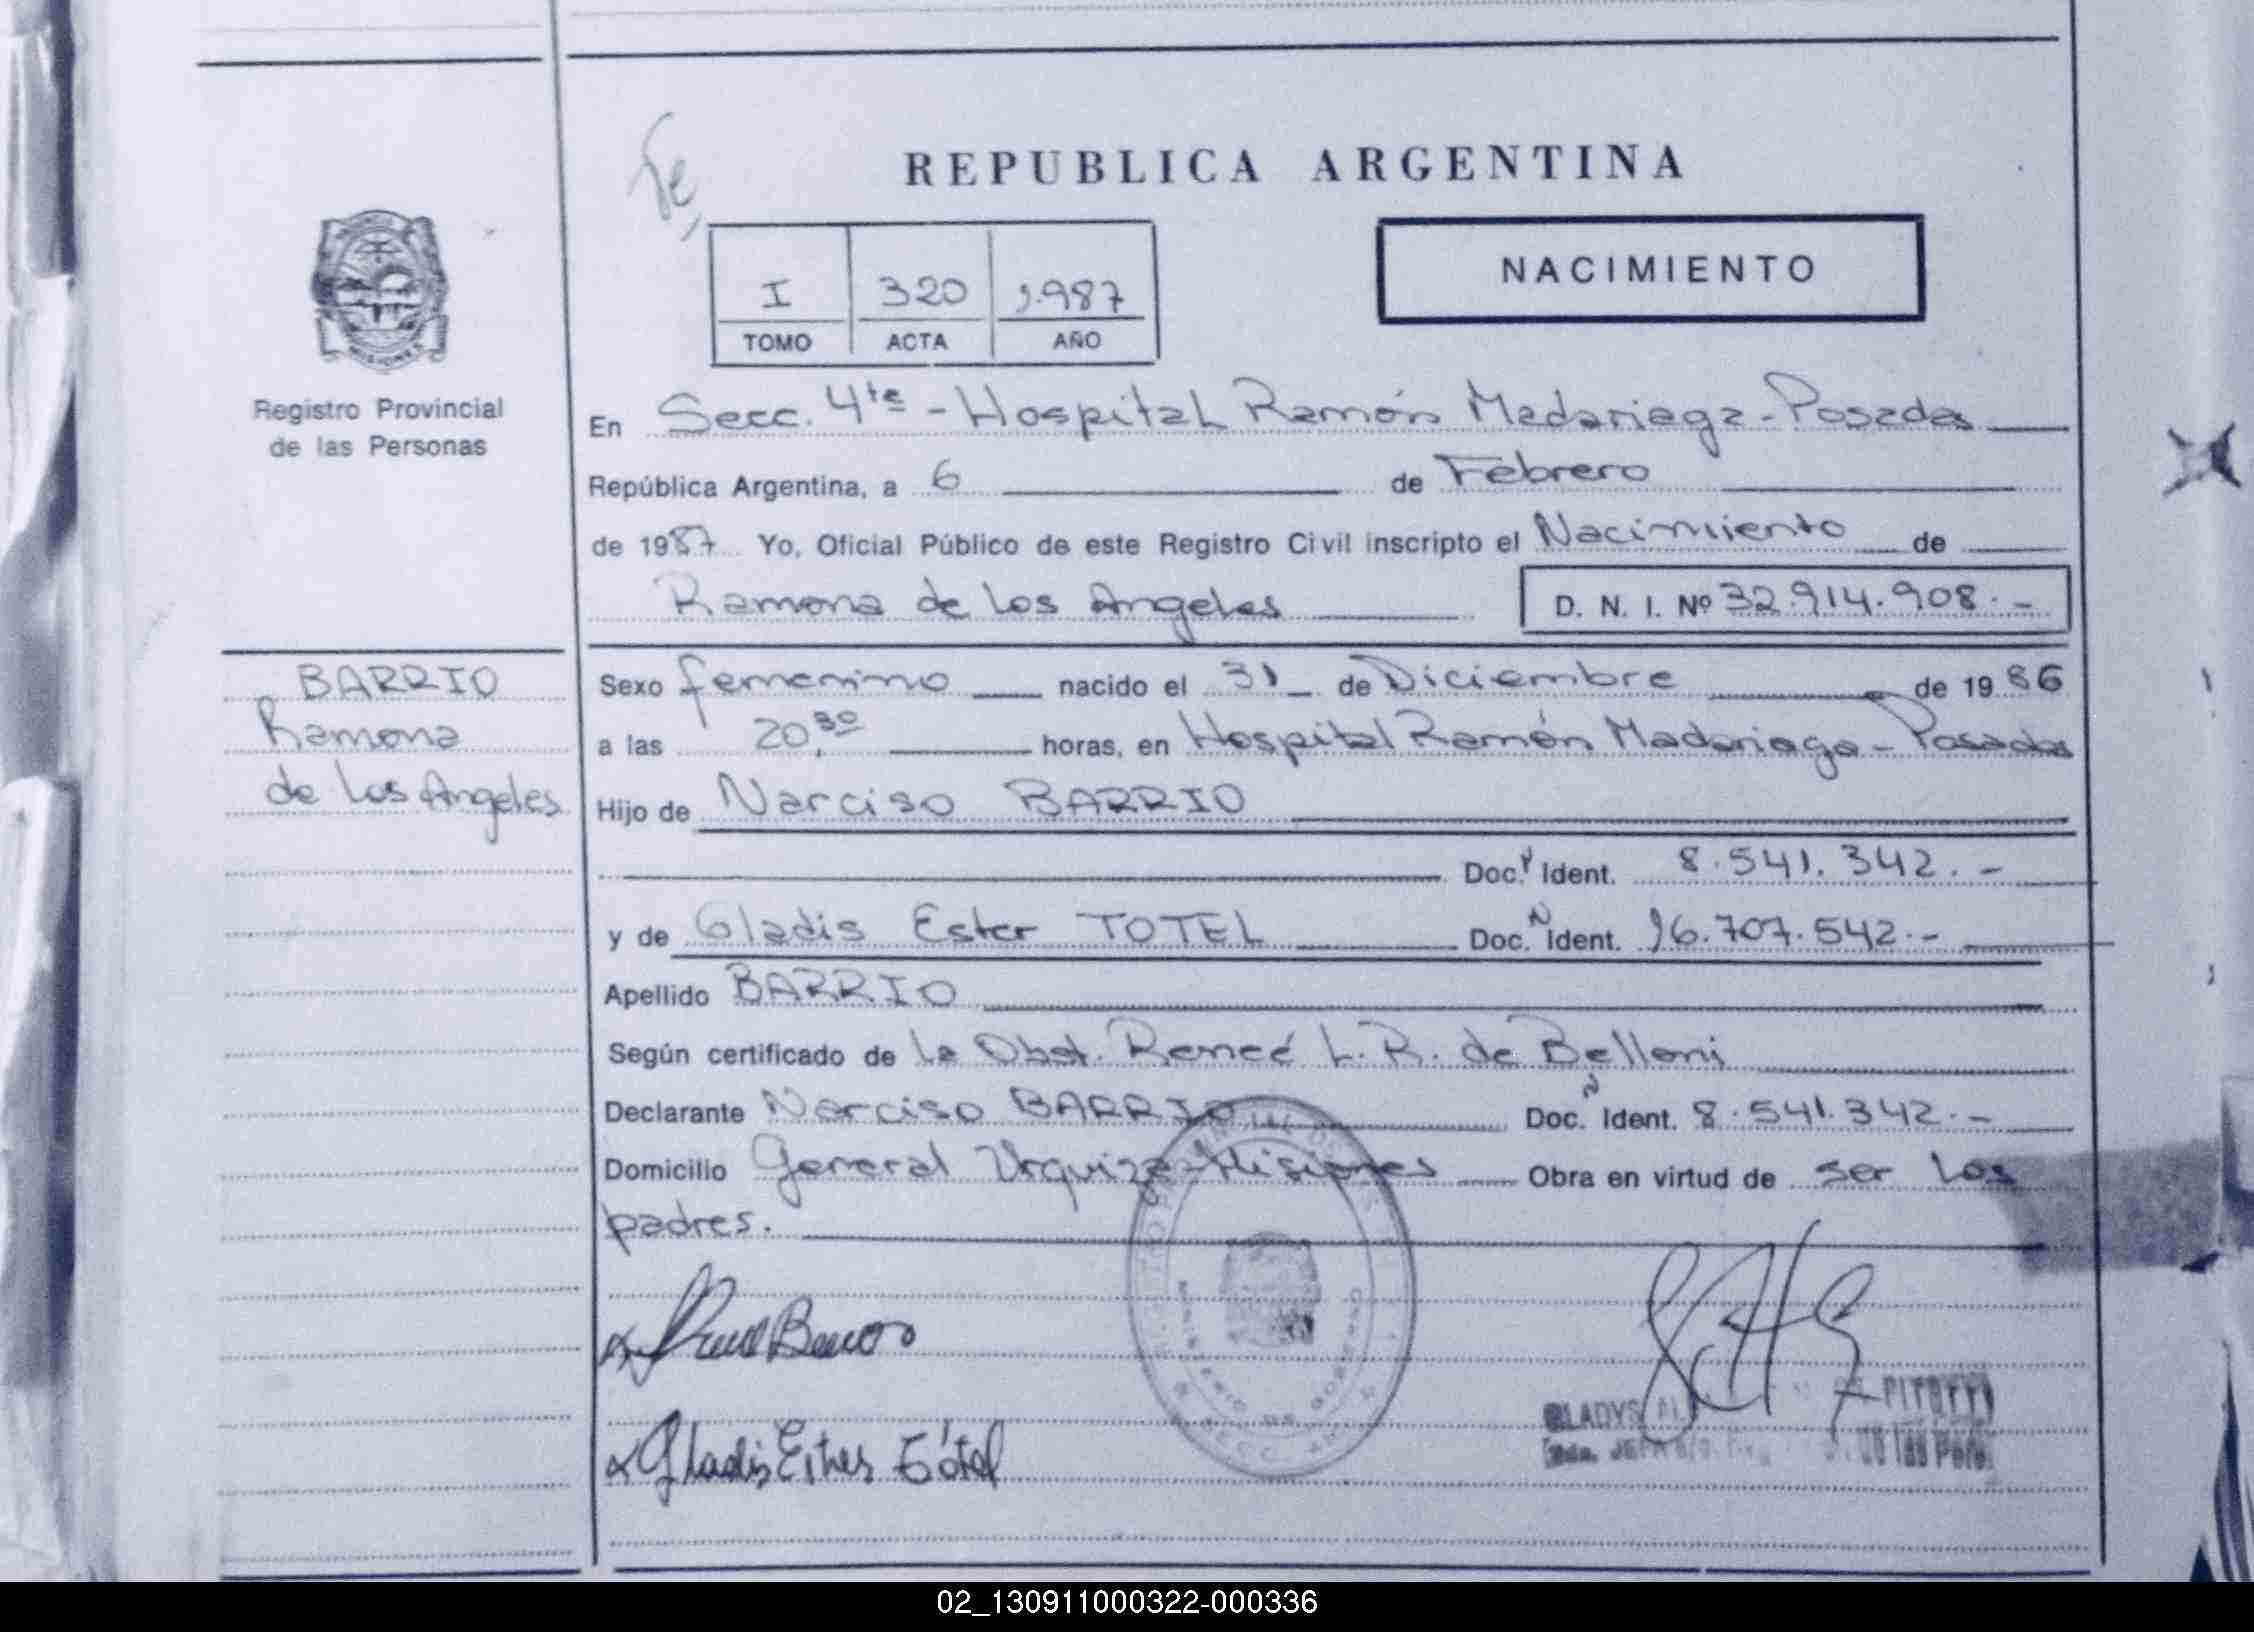 Te
REPUBLICA ARGENTINA
NACIMIENTO
I 320 1.987
TOMO ACTA AÑO
MISIONES
Registro Provincial
de las Personas
En Secc. 4ta - Hospital Ramón Madariaga - Posadas
República Argentina, a 6 de Febrero
de 1987 Yo, Oficial Público de este Registro Civil inscripto el Nacimiento de
Ramona de los Angeles D. N. I. Nº 32.914.908.-
BARRIO
Ramona
de los Angeles
Sexo femenino nacido el 31 de Diciembre de 1986
a las 20,30 horas, en Hospital Ramón Madariaga - Posadas
Hijo de Narciso BARRIO
Doc. Ident. 8.541.342.-
y de Gladis Ester TOTEL Doc. N Ident. 16.707.542.-
Apellido BARRIO
Según certificado de la Obst. Reneé L. R. de Belloni
Declarante Narciso BARRIO Doc. N Ident. 8.541.342.-
Domicilio General Urquiza - Misiones Obra en virtud de ser los
padres.
MINISTERIO DE GOBIERNO
GLADYS
de las Pers.
02_130911000322-000336